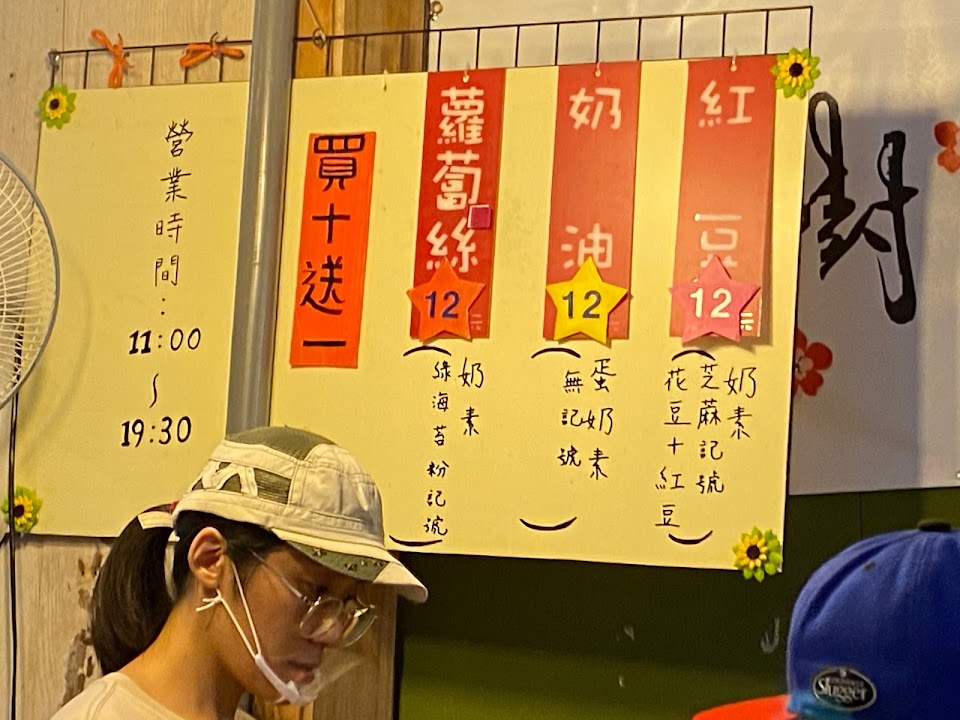 紅豆
12
奶素
芝蔴記號
花豆十紅豆
奶油
12
蛋奶素
無記號
蘿蔔絲
12
奶素
綠海苔粉記號
買十送一
營業時間:
11:00
~
19:30
Slugger